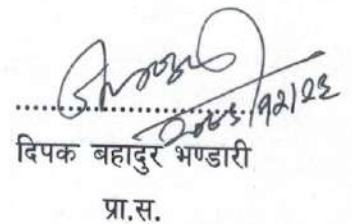 ....................
२०८१/१२/२६
दिपक बहादुर भण्डारी
प्रा.स.